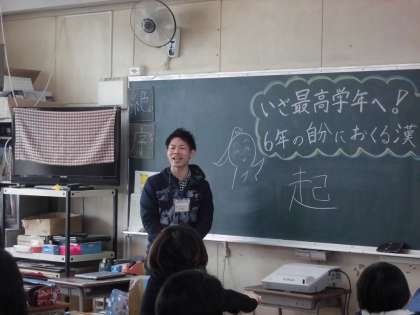 いざ最高学年へ!
6年の自分におくる漢
起